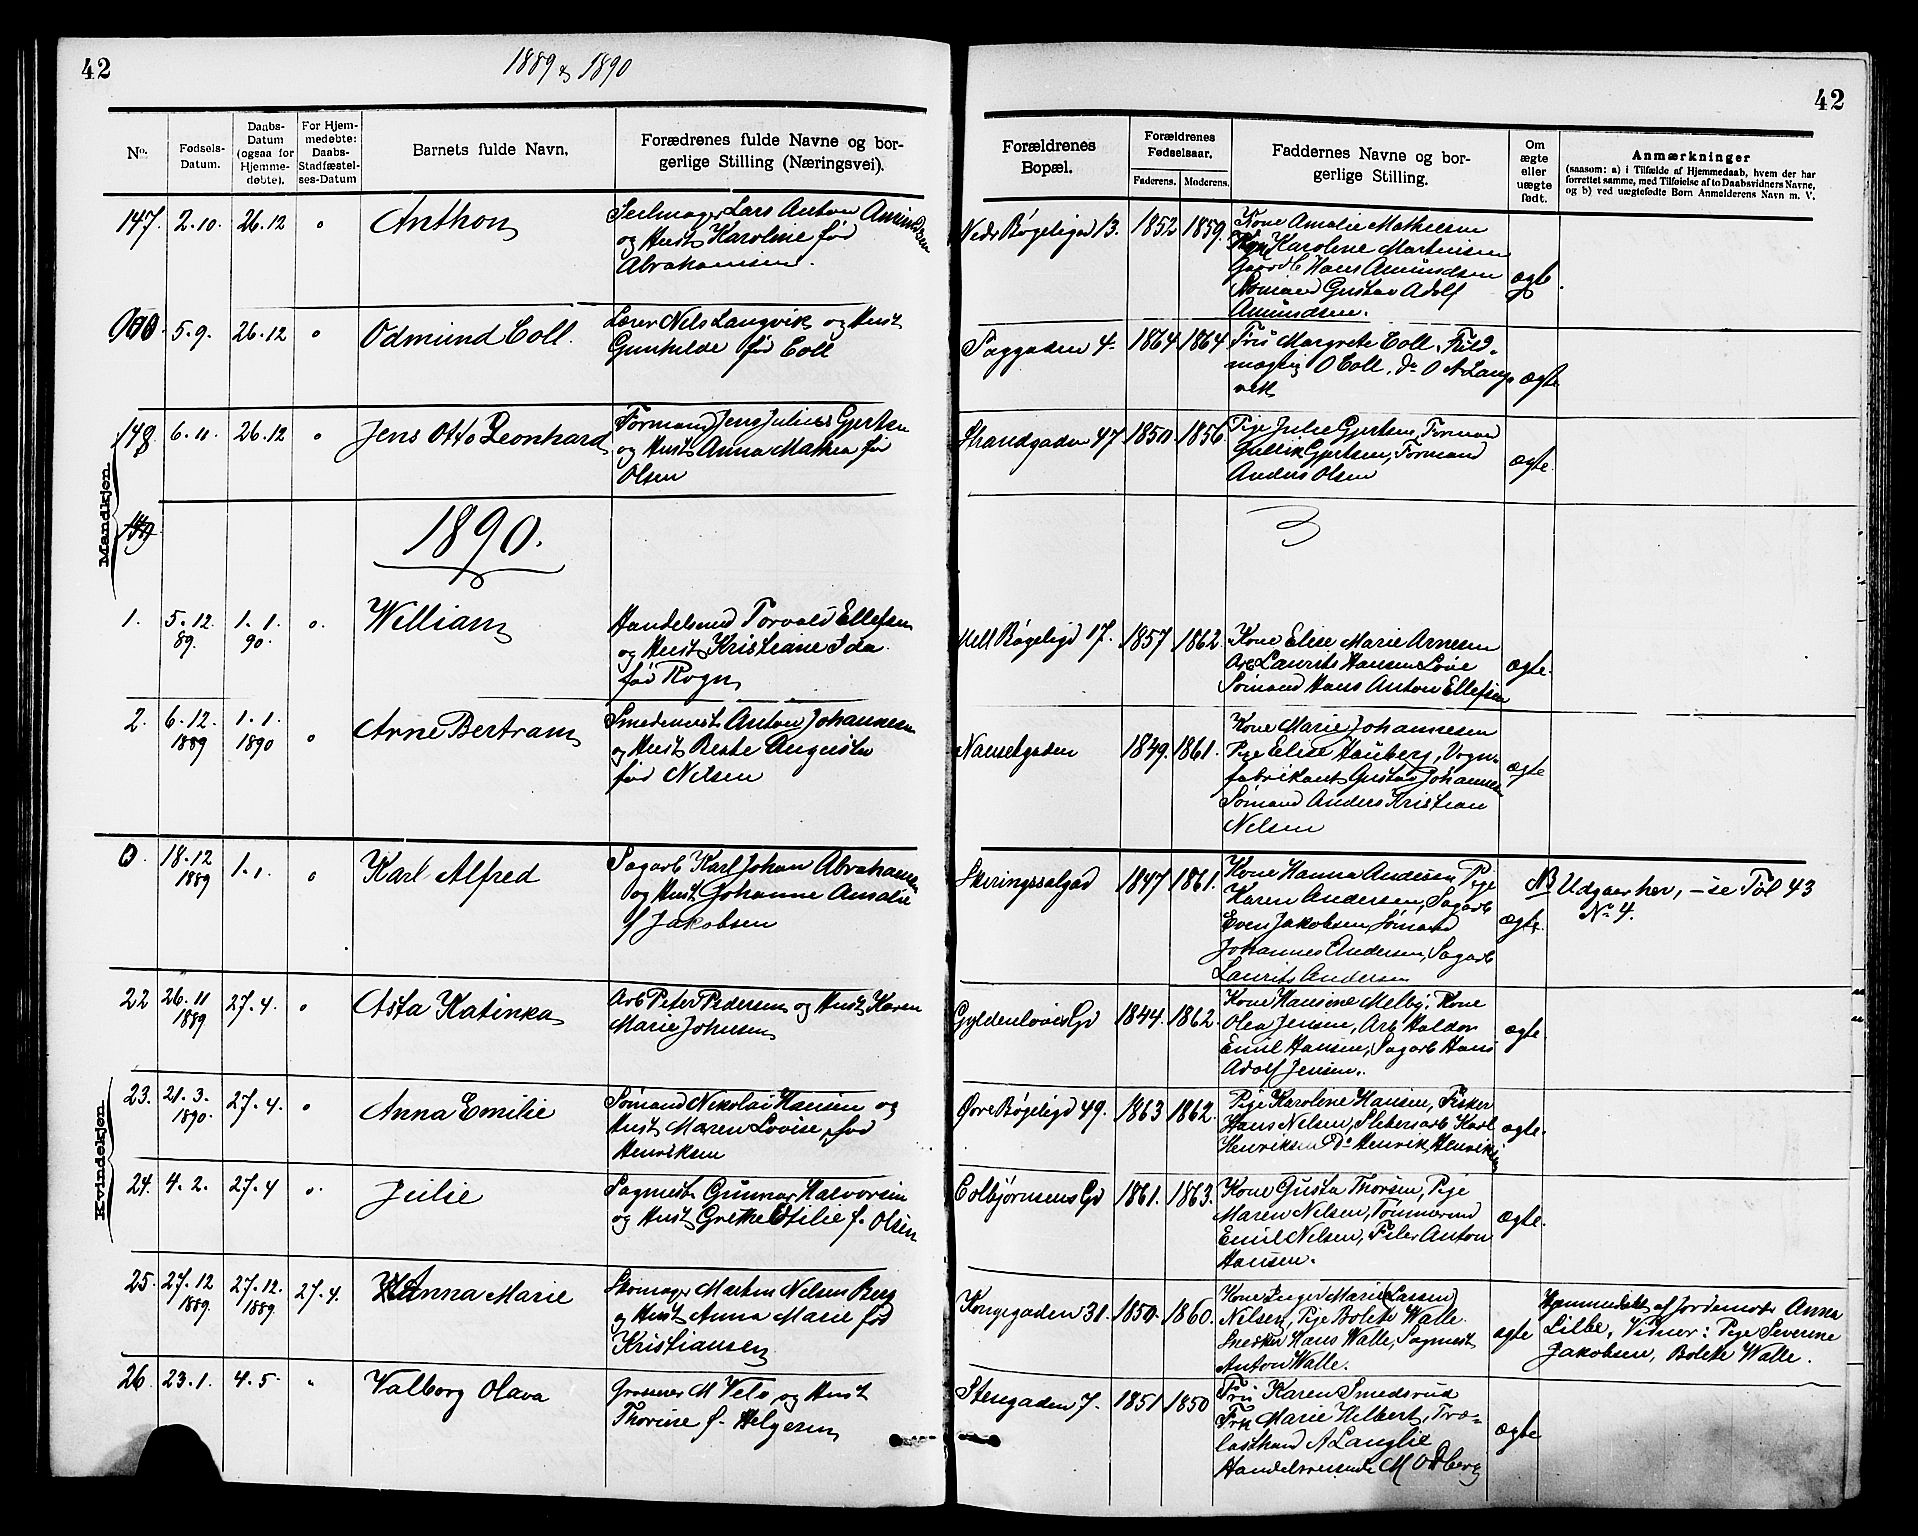 42
1889 & 1890
42
No.
Fødsels-Datum.
Daabs-Datum (ogsaa for Hjemmedøbte).
For Hjemmedøbte: Daabs-Stadfæstelses-Datum
Barnets fulde Navn.
Forædrenes fulde Navne og borgerlige Stilling (Næringsvei).
Forældrenes Bopæl.
Forældrenes Fødselsaar.
Faderens. Moderens.
Faddernes Navne og borgerlige Stilling.
Om ægte eller uægte født.
Anmærkninger
(saasom: a) i Tilfælde af Hjemmedaab, hvem der har
forrettet samme, med Tilføielse af to Daabsvidners Navne,
og b) ved uægtefødte Børn Anmelderens Navn m. V.
147. 2.10. 26.12 " Anthon
Seilmager Lars Anton Amundsen
og Hust Karoline før
Abrahamsen.
Nedr Bøgeligd 13. 1852 1859.
Kone Amalie Mathiesen
Karolene Martinsen
Gaardb Hans Amundsen
Sømand Gustav Adolf
Amundsen.
ægte.
5.9. 26.12 " Odmund Coll.
Lærer Nels Langvik og Hust
Gunhilde før Coll
Saggaden 4. 1864 1864
Fru Margrete Coll, Fuld-
mægtig O Coll. Do O A Lang-
vik
ægte
148. 6.11. 26.12 " Jens Otto Leonhard
Formand Jens Julius Gjertsen
og Hust Anna Mathea før
Olsen
Strandgaden 47. 1850. 1856.
Pige Julie Gjertsen, Formand
Gullik Gjertsen, Formand
Anders Olsen
ægte.
Mandkjøn
149
1890.
1. 5.12.89. 1.1.90. " William
Handelsmd Torvald Ellefsen
og Hust Kristiane Ida
før Rogn
Mell Bøgeligd 17. 1857 1862.
Kone Elise Marie Arnesen
Arb Laurits Hansen Løve
Sømand Hans Anton Ellefsen
ægte.
2. 6.12.1889 1.1.1890 " Arne Bertram
Smedemest Anton Johannesen
og Hust Beate Augusta
før Nilsen
Nansetgaden 1849. 1861.
Kone Marie Johannesen
Pige Elise Hauberg, Vogn-
fabrikant Gustav Johannesen
Sømand Anders Kristian
Nelsen
ægte
0. 18.12 1889 1.1. " Karl Alfred
Sagarb Karl Johan Abrahamsen
og Hust Johanne Amalie
f Jakobsen
Skiringssalgad 1847 1861.
Kone Hanna Andersen, Pige
Karen Andersen, Sagarb
Even Jakobsen, Sømand
Johannes Andersen, Sagarb
Laurits Andersen
ægte.
NB Udgaar her, - se Fol 43
No 4.
22 26.11 1889 27.4. " Asta Katinka
Arb Peter Pedersen og Hust Karen
Marie Johnsen
Gyldenløves Gd 1844. 1862.
Kone Hansine Melby, Kone
Olea Jensen, Arb Haldor
Emil Hansen, Sagarb Hans
Adolf Jensen.
ægte.
Kvindekjøn
23. 21.3.1890. 27.4. " Anna Emilie
Sømand Nikolai Hansen og
Hust Maren Lovise, før
Henriksen
Øvre Bøgeligd 49. 1863 1862.
Pige Karoline Hansen, Fisker
Hans Nelsen, Sliberiarb Karl
Henriksen, Do Henrik Henriksen
ægte.
24. 4.2. 27.4 " Julie
Sagmest. Gunnar Halvorsen
og Hust Grethe Otilie f. Olsen
Colbjørnsens Gd 1861. 1863.
Kone Gusta Thorsen, Pige
Maren Nelsen, Tømmermd
Emil Nelsen, Filer Anton
Hansen.
ægte.
25. 27.12 1889. 27.12.1889. 27.4. Anna Marie
Skomager Martin Nelsen Berg
og Hust Anna Marie før
Kristiansen
Kongegaden 31. 1850. 1860.
Kone Inger Marie (Lassen)
Nelsen, Pige Bolette Walle
Snedker Hans Walle, Sagmest
Anton Walle.
ægte
Hjemmedøbt af Jordemoder Anna
Lilbe, Vidner: Pige Severine
Jakobsen, Bolette Walle.
26. 23.1. 4.5 " Valborg Olava
Grosserer M Velo og Hust
Thorine f. Helgesen
Stengaden 7. 1851. 1850
Fru Karen Smedsrud
Frk Marie Hilbert, Træ-
lasthand A Langlie
Handelsreisende M Odberg
ægte